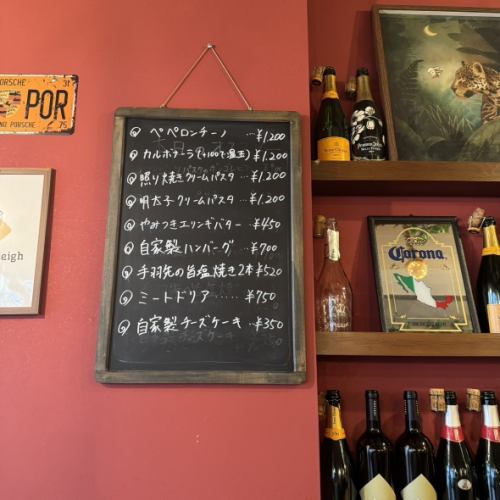 PORSCHE
31
POR
NO PORSCHE
75
eigh
ペペロンチーノ …¥1,200
カルボナーラ(+100で温玉) ¥1,200
照り焼きクリームパスタ …¥1,200
明太子クリームパスタ …¥1,200
やみつきエリンギバター …¥450
自家製ハンバーグ …¥700
手羽先の旨塩焼き2本¥520
ミートドリア …… ¥750
自家製チーズケーキ …¥350
Corona